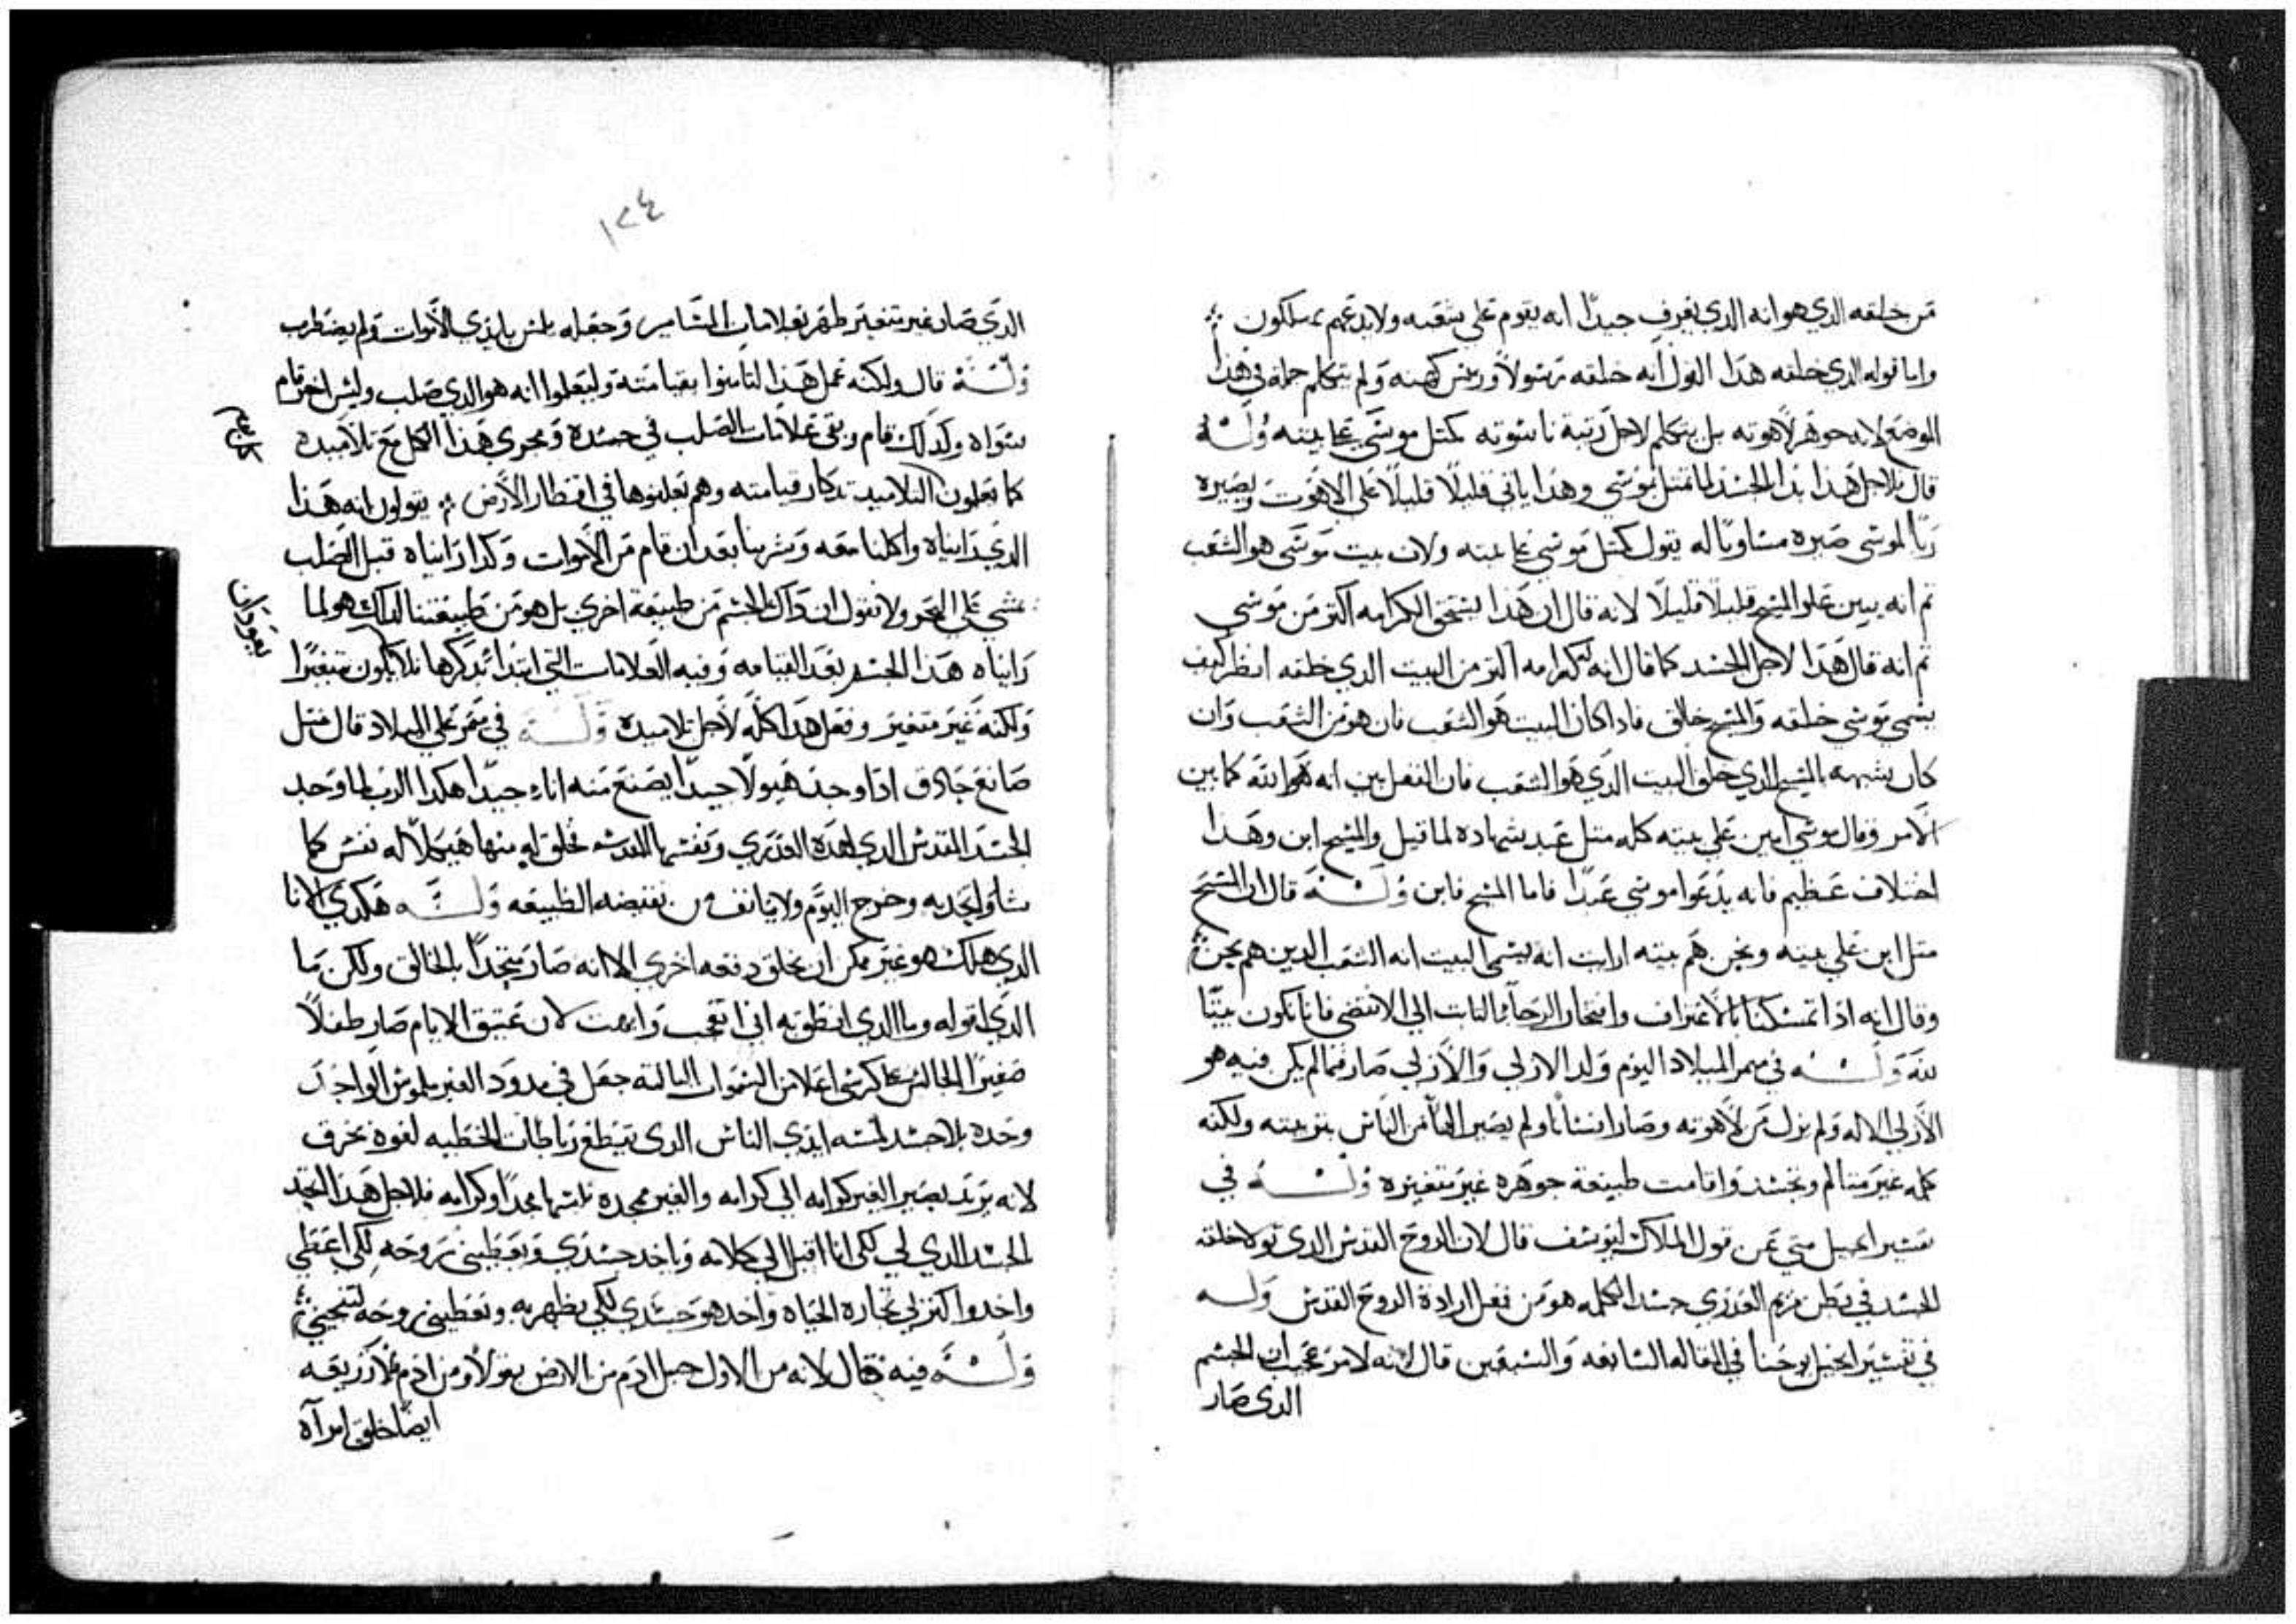 من خلقه الدي هو انه الدي يعرف جيدًا انه يقوم علي شعبه ولا يدعهم يهلكون
واما قوله الدي خلقه هدا القول انه خلقه رسولًا ورييس كهنه ولم يتكلم جمله في هدا
الموضع لاجل جوهر لاهوته بل يتكلم لاجل رتبة ناسوته كمتل موسي علي بيته وله
قال لاجل هدا بدا بالجسد لما متل بموسي وهدا ياتي قليلًا قليلًا علي الاهوت ويصيره
ربًا لموسي صيره مساويًا له يقول كمتل موسي علي بيته ولان بيت موسي هو الشعب
تم انه يبين علو المسيح قليلًا قليلًا لانه قال ان هدا يستحق الكرامه اكتر من موسي
تم انه قال هدا لاجل الجسد كما قال انه كرامه اكتر من البيت الدي خلقه انظر كيف
يسمي موسي خلقه والمسيح خالق فادا كان البيت هو الشعب فان هو من الشعب وان
كان يشبهه بالمسيح الدي خلق البيت الدي هو الشعب فان الفعل يبين انه هو الله كما يبين
الامر وقال موسي امين علي بيته كله متل عبد بشهاده لما قيل والمسيح ابن وهدا
اختلاف عظيم فانه يدعوا موسي عبدًا فاما المسيح فابن وله قال ان المسيح
متل ابن علي بيته ونحن هم بيته ارايت انه يسمي البيت انه الشعب الدين هم نحن
وقال انه ادا تمسكنا بالاعتراف وافتخار الرجا والتبات الي الانقضي فاننا نكون بيتًا
لله وله في ميمر الميلاد اليوم ولد الازلي والازلي صار فيما لم يكن فيه هو
الازلي الاله ولم يزل من لاهوته وصار انسانا ولم يصير الهًا من الناس بتربيته ولكنه
كلمه غير متالم وتجسد واقامت طبيعة جوهره غير متغيره وله في
تفسير انجيل متي عن قول الملاك ليوسف قال لان الروح القدس الدي تولا خلقة
الجسد في بطن مريم العدري جسد الكلمه هو من فعل ارادة الروح القدس وله
في تفسير انجيل يوحنا في المقاله السابعه والسبعين قال لانه لامر عجب ان الجسم
الدي صار
١٢٤
الدي صار غير متغير ظهر بعلامات المسامير وجعله يلمس بايدي الاموات ولم يضطرب
وله قال ولكنه عمل هدا لتامنوا بقيامته وليعلموا انه هو الدي صلب وليس اخر قام
سواه وكدلك قام وبقي علامات الصلب في جسده ومجري هدا الكل مع تلاميده
كما يعلمون التلاميد تدكار قيامته وهم يعلنوها في اقطار الارض يقولون انه هدا
الدي رايناه واكلنا معه وشربنا بعد ان قام من الاموات وكدا رايناه قبل الصلب
يمشي علي البحر ولا نقول ان داك الجسم من طبيعة اخري بل هو من طبيعتنا كدلك هو لما
رايناه هدا الجسد بعد القيامه وفيه العلامات التي ابتدا تدكرها لا يكون متغيرًا
ولكنه غير متغير وفعل هدا كله لاجل تلاميده وله في ميمر علي الميلاد قال متل
صانع حادق ادا وجد هيولًا جيدًا يصنع منه اناء جيدًا هكدا الرب لما وجد
الجسد المقدس الدي لهده العدري ونفسها المقدسه خلق له منها هيكلًا له نفس كما
شا وليجد به وخرج اليوم ولا يانف من نقيضه الطبيعه وله هكدي الانا
الدي هلك هو غير ممكن ان يخلق دفعه اخري الا انه صار متحدًا بالخالق ولكن ما
الدي اقوله وما الدي انطق به اني اتعجب وابهت لان عتيق الايام صار طفلًا
صغيرًا الجالس علي كرسي اعلا من السموات العاليه جعل في مدود الغير ملموس الواحد
وحده بلا جسد لمسته ايدي الناس الدي يقطع رباطات الخطيه لقوة يخرق
لانه يريد يصير الغير كرامه الي كرامه والغير ممجده يلبسها مجدًا وكرامه فلاجل هدا اتخد
الجسد الدي لي لكي انا اقبل الي كلامه وياخد جسدي ويعطيني روحه لكي اعطي
واخدوا كنزلي تجاره الحياه واخد هو جسدي لكي يظهر به ويعطيني روحه لينجيني
وله فيه قال لانه من الاول جبل ادم من الارض بقولًا ومن ادم بلا زريعه
ايضًا خلق امراه